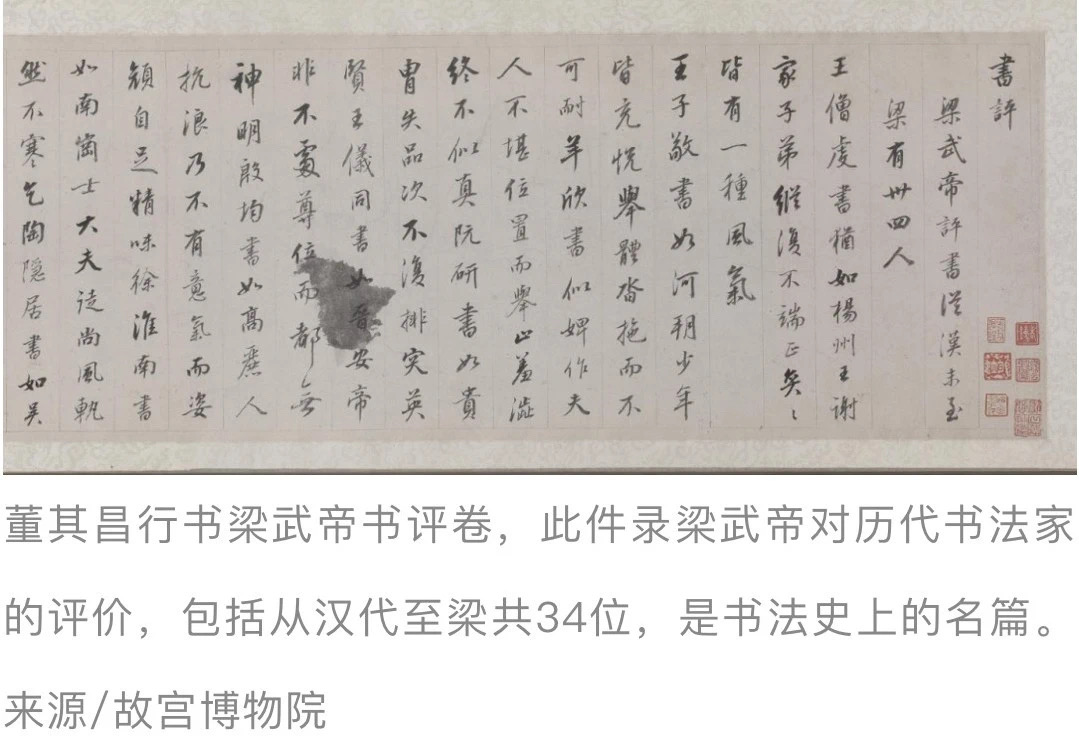 書評
梁武帝評書從漢末至
梁有卅四人
王僧虔書猶如楊州王謝
家子弟縱復不端正奕〻
皆有一種風氣
王子敬書如河朔少年
皆充悦舉體沓拖而不
可耐羊欣書似婢作夫
人不堪位置而舉止羞澁
終不似真阮研書如貴
胄失品次不復排突英
賢王儀同書如晋安帝
非不處尊位而都無
神明殷均書如高麗人
抗浪乃不有意氣而姿
顏自足精味徐淮南書
如南崗士大夫徒尚風軌
然不寒乞陶隱居書如吴
董其昌行书梁武帝书评卷，此件录梁武帝对历代书法家
的评价，包括从汉代至梁共34位，是书法史上的名篇。
来源/故宫博物院